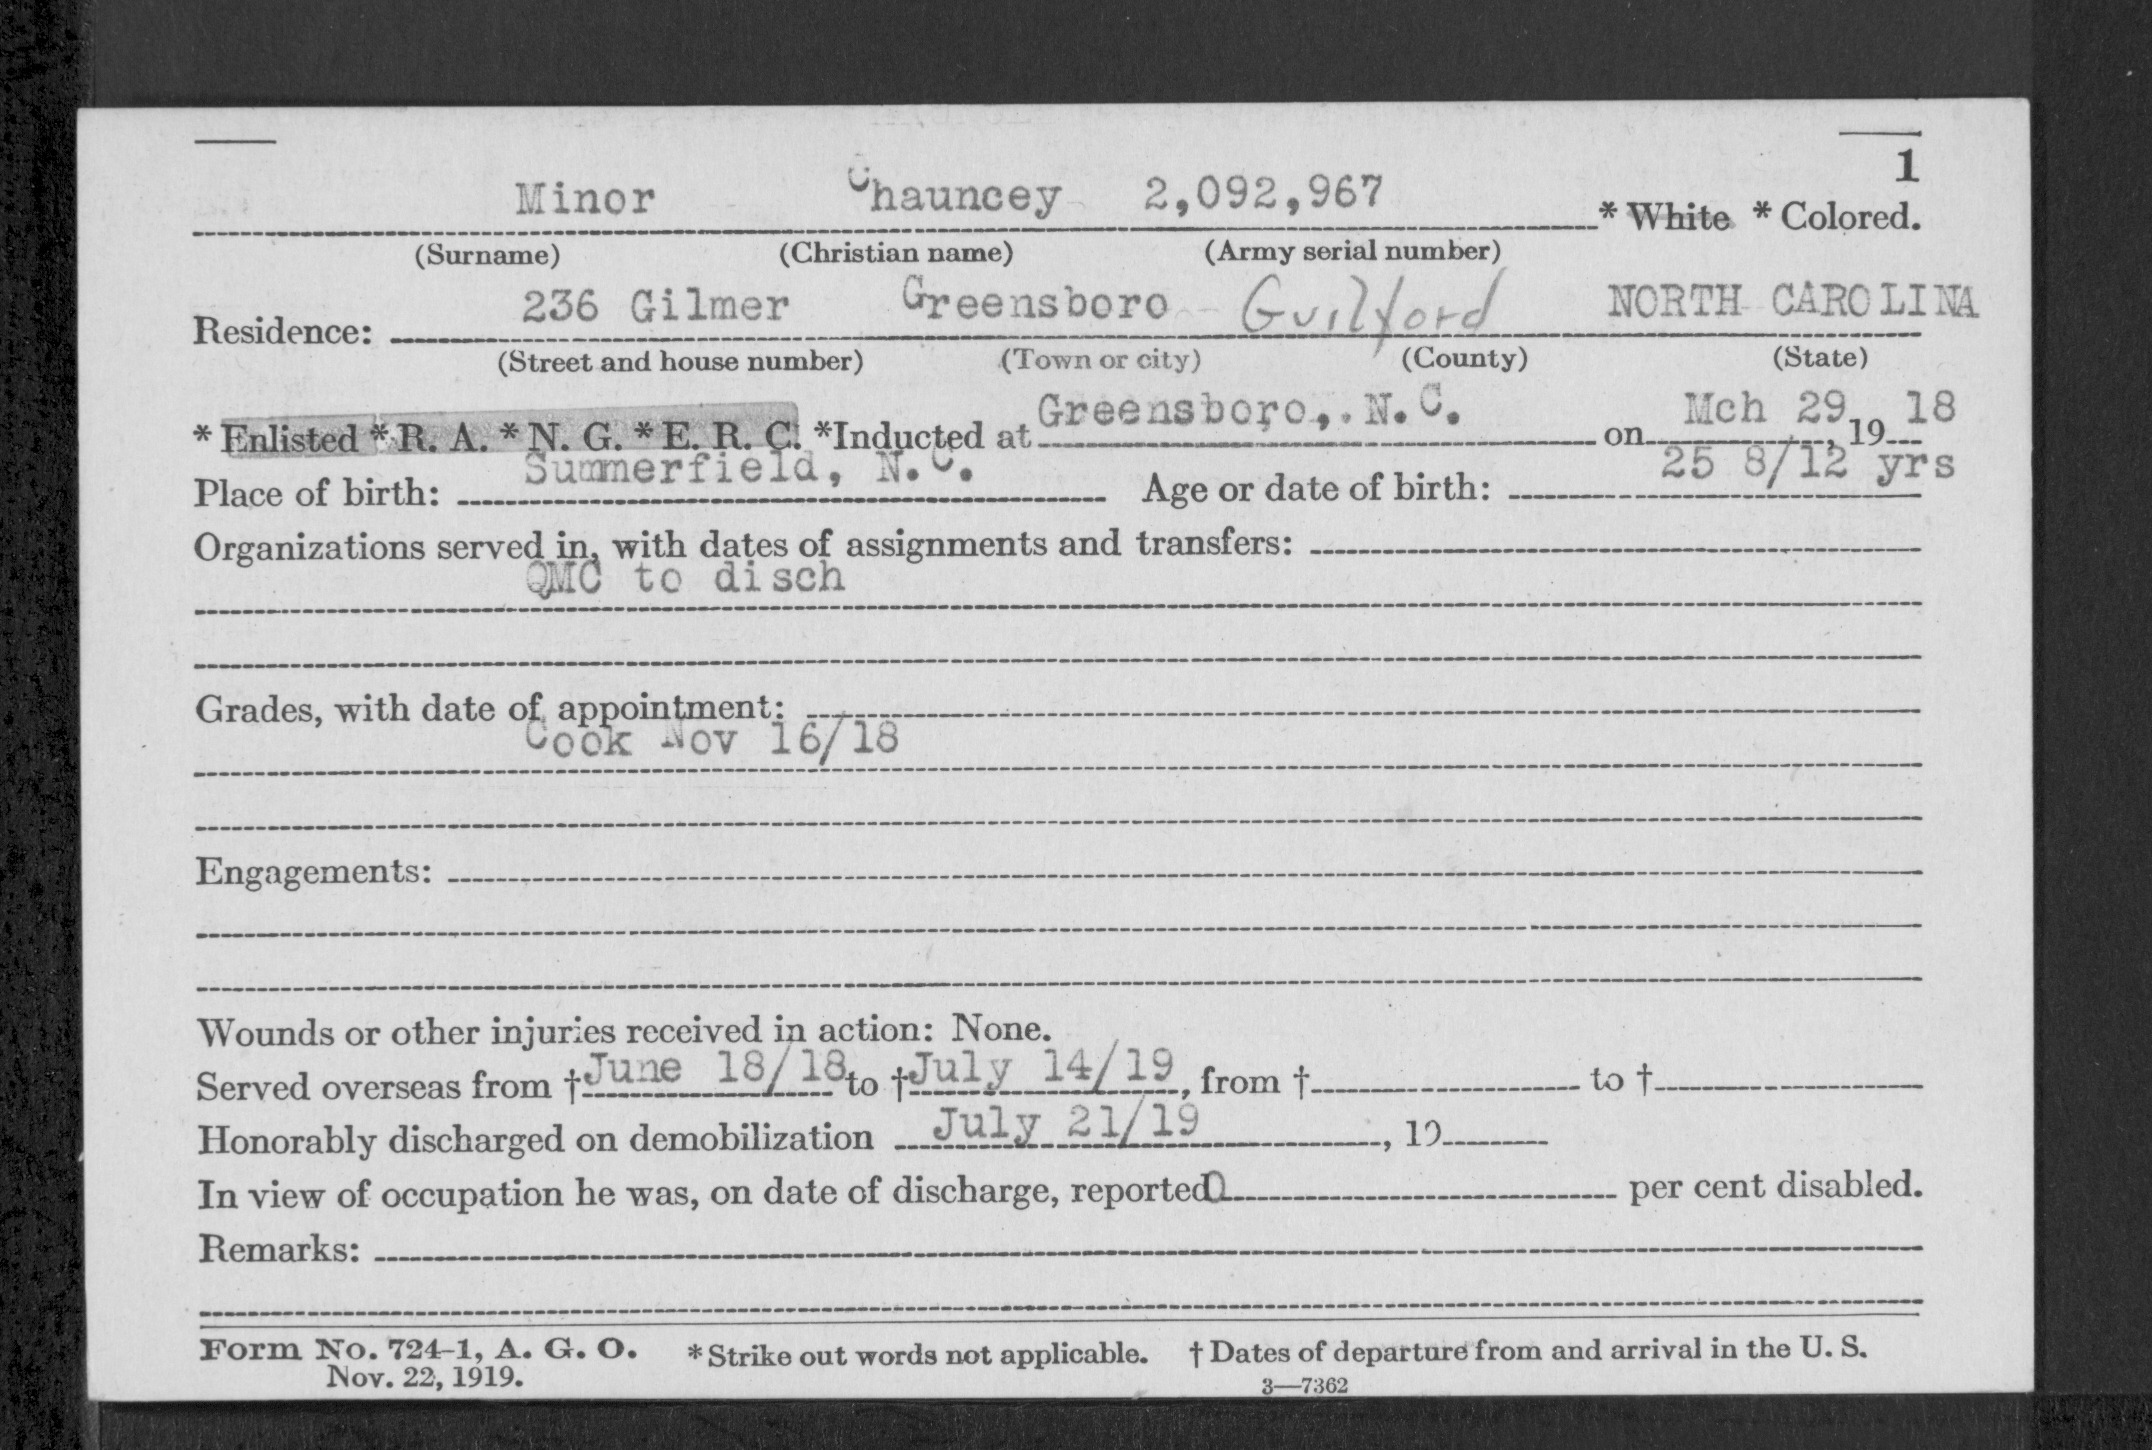 1
Minor Chauncey 2,092,967 * White * Colored.
(Surname) (Christian name) (Army serial number)
Residence: 236 Gilmer Greensboro Guilford NORTH CAROLINA
(Street and house number) (Town or city) (County) (State)
* Enlisted * R. A. * N. G. * E. R. C. * Inducted at Greensboro, N.C. on Mch 29, 19 18
Place of birth: Summerfield, N.C. Age or date of birth: 25 8/12 yrs
Organizations served in, with dates of assignments and transfers:
QMC to disch
Grades, with date of appointment:
Cook Nov 16/18
Engagements:
Wounds or other injuries received in action: None.
Served overseas from † June 18/18 to † July 14/19, from † to †
Honorably discharged on demobilization July 21/19, 19
In view of occupation he was, on date of discharge, reported 0 per cent disabled.
Remarks:
Form No. 724-1, A. G. O. * Strike out words not applicable. † Dates of departure from and arrival in the U. S.
Nov. 22, 1919. 3—7362